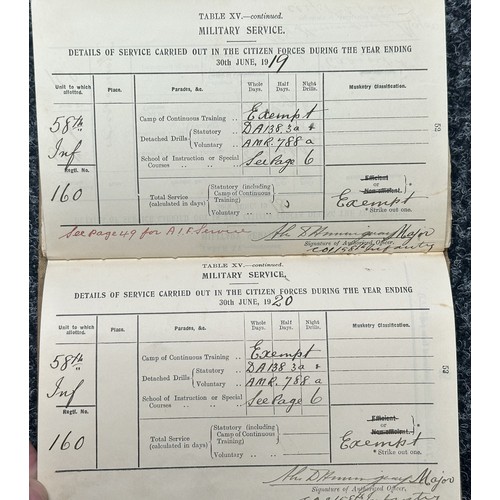 TABLE XV.—continued.
MILITARY SERVICE.
DETAILS OF SERVICE CARRIED OUT IN THE CITIZEN FORCES DURING THE YEAR ENDING
30th JUNE, 1919
Unit to which allotted. Place. Parades, &c. Whole Days. Half Days. Night Drills. Musketry Classification.
58th Inf
Regtl. No.
160
Camp of Continuous Training .. Exempt
Detached Drills { Statutory .. DA138.3a &
Voluntary .. AMR. 788 a
School of Instruction or Special Courses .. .. .. See Page 6
Total Service (calculated in days) { Statutory (including Camp of Continuous Training)
Voluntary ..
Efficient
or
Non-efficient.
Exempt
* Strike out one.
See page 49 for A.I.F. Service
Major
Signature of Authorised Officer,
52
TABLE XV.—continued.
MILITARY SERVICE.
DETAILS OF SERVICE CARRIED OUT IN THE CITIZEN FORCES DURING THE YEAR ENDING
30th JUNE, 1920
Unit to which allotted. Place. Parades, &c. Whole Days. Half Days. Night Drills. Musketry Classification.
58th Inf
Regtl. No.
160
Camp of Continuous Training .. Exempt
Detached Drills { Statutory .. DA138.3a &
Voluntary .. AMR. 788 a
School of Instruction or Special Courses .. .. .. See Page 6
Total Service (calculated in days) { Statutory (including Camp of Continuous Training)
Voluntary ..
Efficient
or
Non-efficient.
Exempt
* Strike out one.
Major
Signature of Authorised Officer,
52